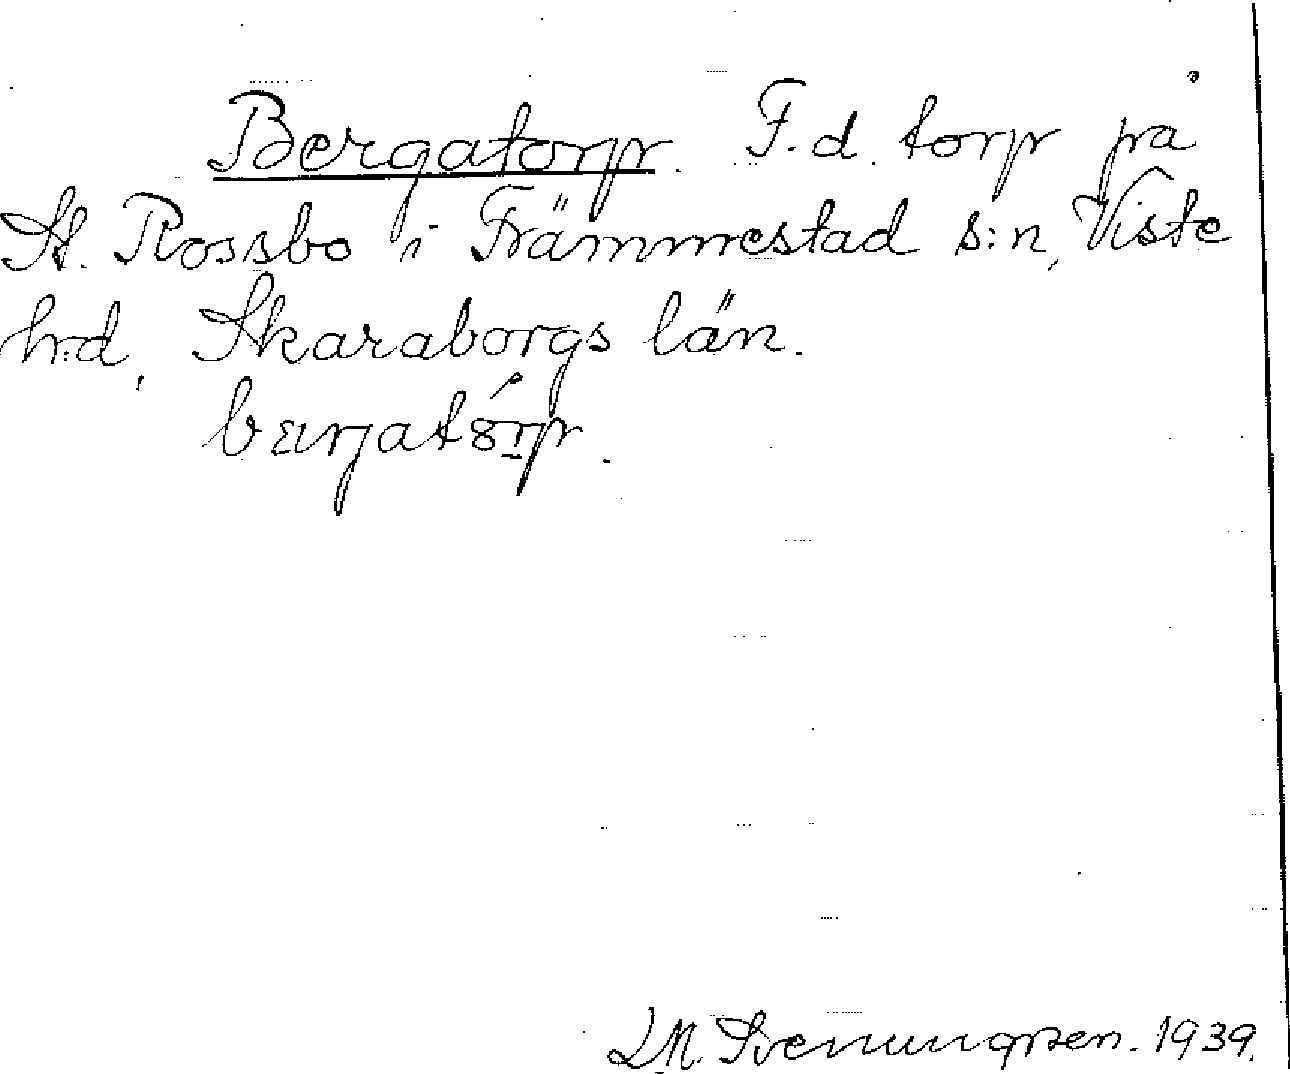 Bergatorp. F.d. torp på
St. Rossbo i Främmestad s:n, Viste
h:d, Skaraborgs län.
bærjatórp.
L M. Svenungsson. 1939.